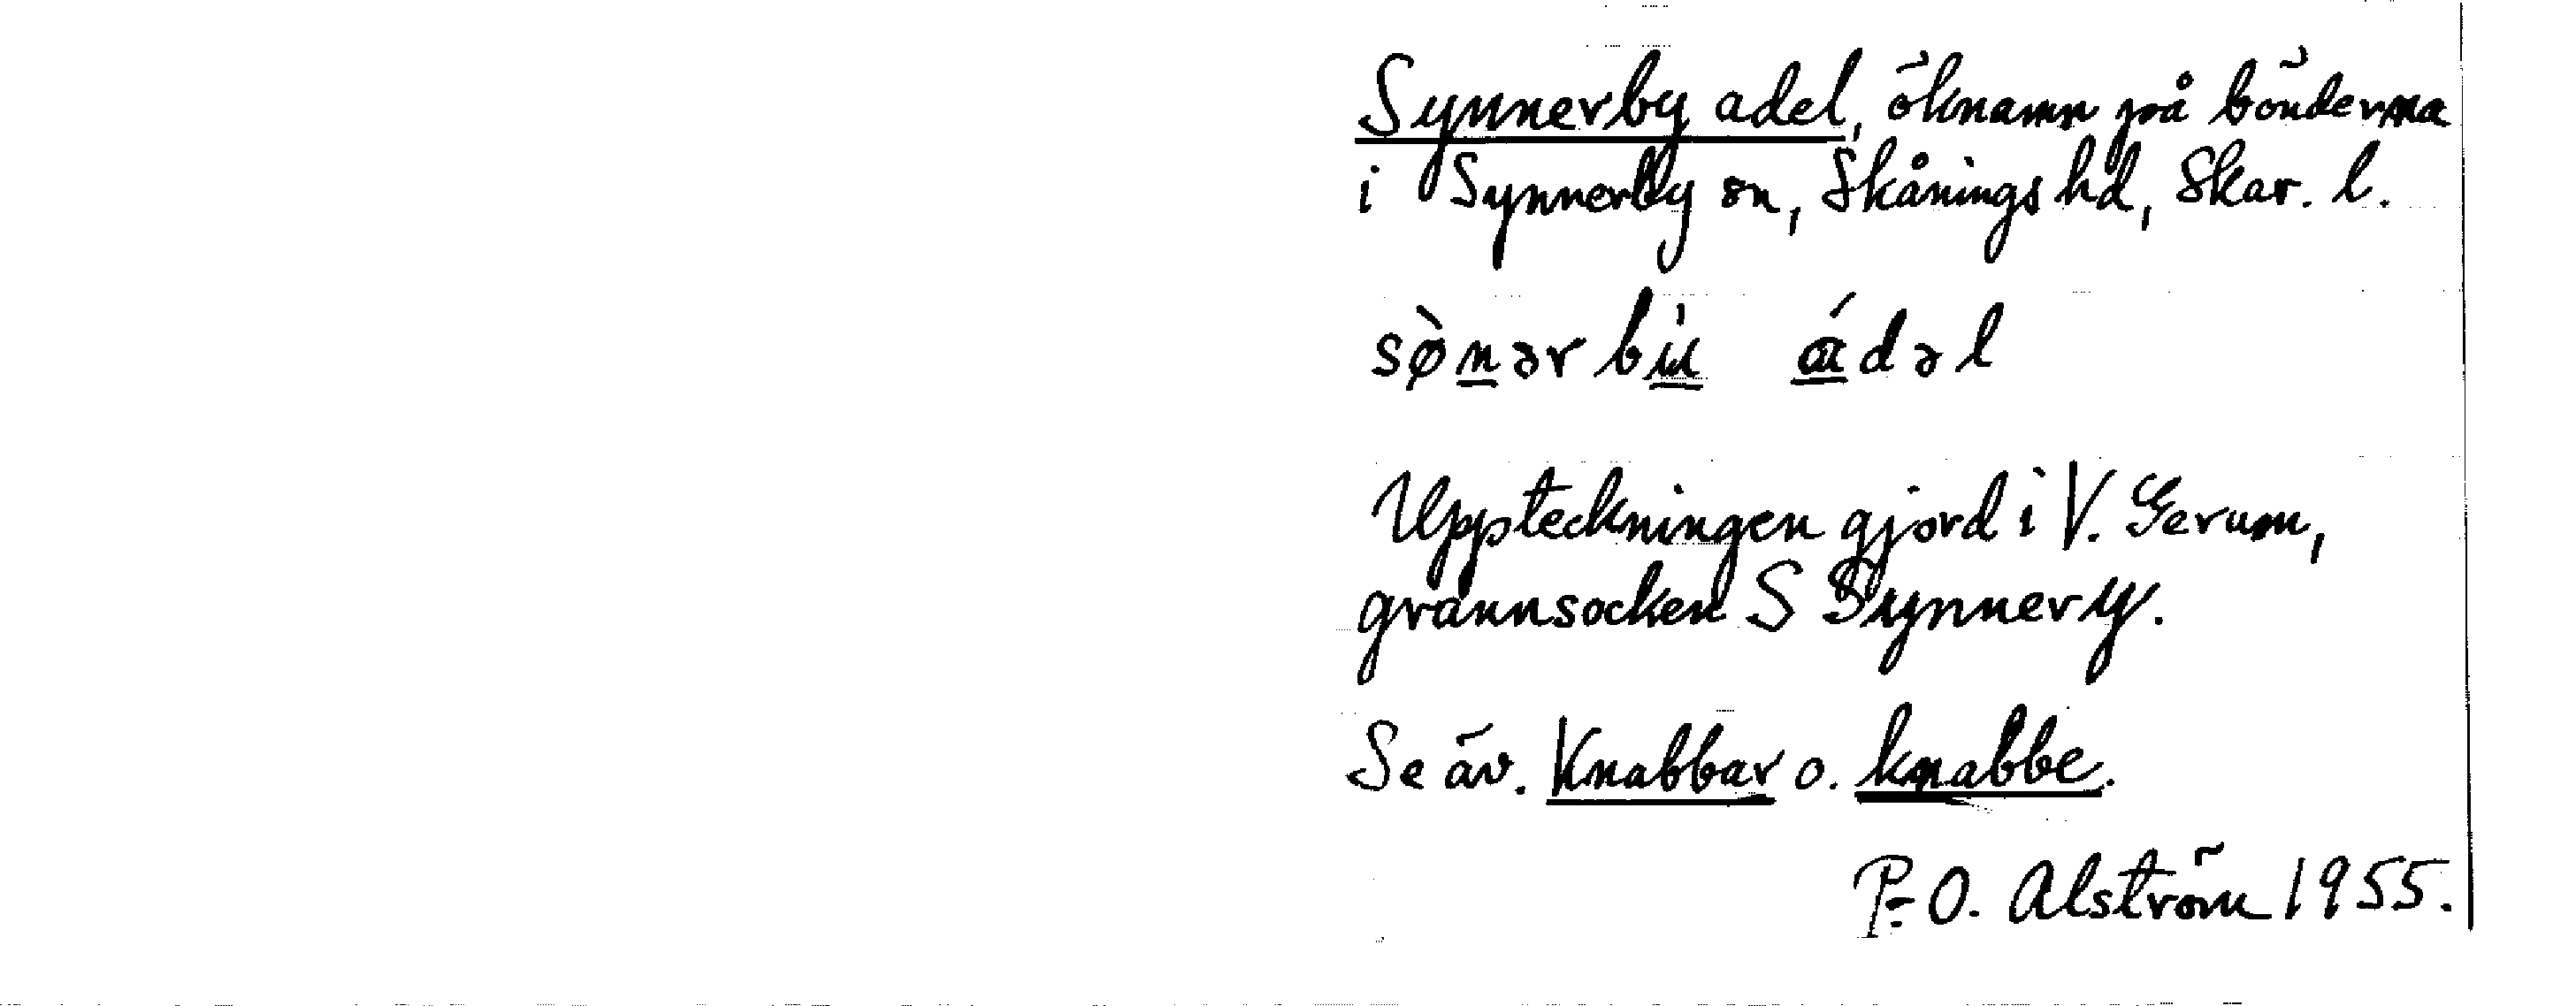 Synnerby adel, öknamn på bönderna
i Synnerby sn, Skånings hd, Skar. l.
sø̀nərbu̇ ádəl
Uppteckningen gjord i V. Gerum,
grannsocken S Synnery.
Se äv. Knabbar o. knabbe.
P.-O. Alström 1955.